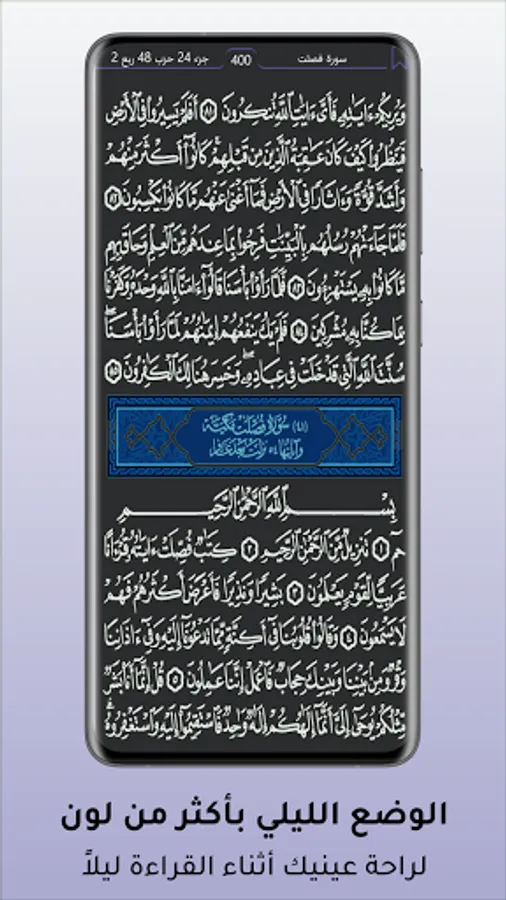 سورة فصلت 400 جزء 24 حزب 48 ربع 2
وَيُرِيكُمْ ءَايَٰتِهِۦ فَأَىَّ ءَايَٰتِ ٱللَّهِ تُنكِرُونَ ٨١ أَفَلَمْ يَسِيرُوا۟ فِى ٱلْأَرْضِ
فَيَنظُرُوا۟ كَيْفَ كَانَ عَٰقِبَةُ ٱلَّذِينَ مِن قَبْلِهِمْ كَانُوٓا۟ أَكْثَرَ مِنْهُمْ
وَأَشَدَّ قُوَّةً وَءَاثَارًا فِى ٱلْأَرْضِ فَمَآ أَغْنَىٰ عَنْهُم مَّا كَانُوا۟ يَكْسِبُونَ ٨٢
فَلَمَّا جَآءَتْهُمْ رُسُلُهُم بِٱلْبَيِّنَٰتِ فَرِحُوا۟ بِمَا عِندَهُم مِّنَ ٱلْعِلْمِ وَحَاقَ بِهِم
مَّا كَانُوا۟ بِهِۦ يَسْتَهْزِءُونَ ٨٣ فَلَمَّا رَأَوْا۟ بَأْسَنَا قَالُوٓا۟ ءَامَنَّا بِٱللَّهِ وَحْدَهُۥ وَكَفَرْنَا
بِمَا كُنَّا بِهِۦ مُشْرِكِينَ ٨٤ فَلَمْ يَكُ يَنفَعُهُمْ إِيمَٰنُهُمْ لَمَّا رَأَوْا۟ بَأْسَنَا ۖ
سُنَّتَ ٱللَّهِ ٱلَّتِى قَدْ خَلَتْ فِى عِبَادِهِۦ ۖ وَخَسِرَ هُنَالِكَ ٱلْكَٰفِرُونَ ٨٥
(٤١) سُورَةُ فُصِّلَتْ مَكِّيَّة
وَآيَاتُهَا ٥٤ نَزَلَتْ بَعْدَ غَافِر
بِسْمِ ٱللَّهِ ٱلرَّحْمَٰنِ ٱلرَّحِيمِ
حمٓ ١ تَنزِيلٌ مِّنَ ٱلرَّحْمَٰنِ ٱلرَّحِيمِ ٢ كِتَٰبٌ فُصِّلَتْ ءَايَٰتُهُۥ قُرْءَانًا
عَرَبِيًّا لِّقَوْمٍ يَعْلَمُونَ ٣ بَشِيرًا وَنَذِيرًا فَأَعْرَضَ أَكْثَرُهُمْ فَهُمْ
لَا يَسْمَعُونَ ٤ وَقَالُوا۟ قُلُوبُنَا فِىٓ أَكِنَّةٍ مِّمَّا تَدْعُونَآ إِلَيْهِ وَفِىٓ ءَاذَانِنَا
وَقْرٌ وَمِنۢ بَيْنِنَا وَبَيْنِكَ حِجَابٌ فَٱعْمَلْ إِنَّنَا عَٰمِلُونَ ٥ قُلْ إِنَّمَآ أَنَا۠ بَشَرٌ
مِّثْلُكُمْ يُوحَىٰٓ إِلَىَّ أَنَّمَآ إِلَٰهُكُمْ إِلَٰهٌ وَٰحِدٌ فَٱسْتَقِيمُوٓا۟ إِلَيْهِ وَٱسْتَغْفِرُوهُ ۗ
الوضع الليلي بأكثر من لون
لراحة عينيك أثناء القراءة ليلاً